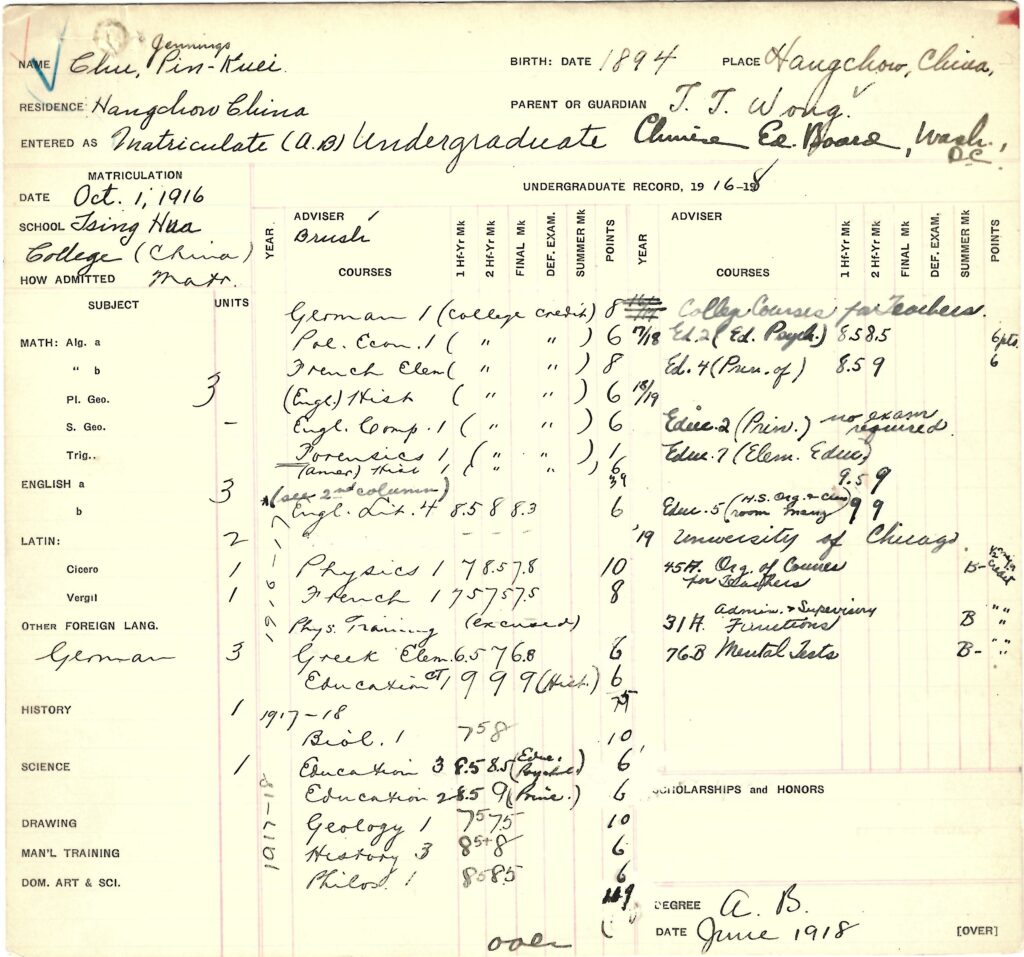 Jennings
NAME Chu, Pin-Kuei. BIRTH: DATE 1894 PLACE Hangchow, China,
RESIDENCE Hangchow China PARENT OR GUARDIAN T. T. Wong
ENTERED AS Matriculate (A.B) Undergraduate Chinese Ed. Board, Wash., D.C.
MATRICULATION
DATE Oct. 1, 1916
SCHOOL Tsing Hua
College (China)
HOW ADMITTED Matr.
SUBJECT UNITS
MATH: Alg. a
" b
Pl. Geo. 3
S. Geo. -
Trig..
ENGLISH a 3
b
LATIN: 2
Cicero 1
Vergil 1
OTHER FOREIGN LANG.
German 3
HISTORY 1
SCIENCE 1
DRAWING
MAN'L TRAINING
DOM. ART & SCI.
UNDERGRADUATE RECORD, 1916-18
YEAR. ADVISER Brush COURSES 1 Hf-Yr Mk 2 Hf-Yr Mk FINAL Mk DEF. EXAM. SUMMER Mk POINTS
German 1 (College credit) 8
Pol. Econ. 1 ( " " ) 6
French Elem ( " " ) 8
(Engl.) Hist ( " " ) 6
Engl. Comp. 1 ( " " ) 6
Forensics 1 ( " " ) 1
(Amer) Hist 1 ( " " ) 6
39
(see 2nd column)
1916-17
Engl. Lit. 4 8.5 8 8.3 6
Physics 1 7 8.5 7.8 10
French 1 7.5 7.5 7.5 8
Phys. Training (excused)
Greek Elem. 6.5 7 6.8 6
Education 1 9 9 9 (Hist.) 6
75
1917-18
Biol. 1 7.5 8 10
Education 3 8.5 8.5 (Educ. Psychol.) 6
1917-18
Education 2 8.5 9 (Princ.) 6
Geology 1 7.5 7.5 10
History 3 8.5+ 8 6
Philos. 1 8.5 8.5 6
119
over
YEAR ADVISER COURSES 1 Hf-Yr Mk 2 Hf-Yr Mk FINAL Mk DEF. EXAM. SUMMER Mk POINTS
College Courses for Teachers.
17/18 Ed. 2 (Ed. Psych.) 8.5 8.5 6 pts.
Ed. 4 (Prin. of) 8.5 9 6
18/19
Educ. 2 (Prin.) no exam required.
Educ. 7 (Elem. Educ)
9.5 9
Educ. 5 (H.S. Org. & Classroom Manag) 9 9
'19 University of Chicago.
45A. Org. of Courses for Teachers B-
31A. Admin. & Supervisory Functions B " "
76B Mental Tests B- " "
SCHOLARSHIPS and HONORS
DEGREE A. B.
DATE June 1918 [OVER]